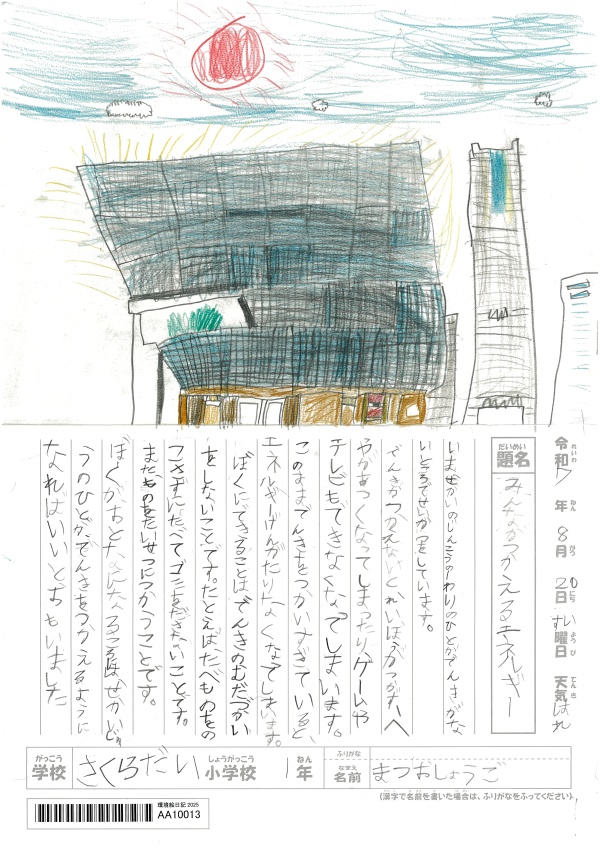 令和7年8月20日すい曜日 天気はれ
れいわ ねん がつ にち ようび てんき
だいめい
題名 みんながつかえるエネルギー
いませかいのじんこうの一わりのひとがでんきがな
いところでせいかつをしています。
でんきがつかえないと
へ
やがあつくなってしまったり、ゲームや
テレビもできなくなってしまいます。
このままでんきをつかいすぎていると、
エネルギーげんがたりなくなてしまいます。
ぼくにできることはでんきのむだづかい
をしないことです。たとえばたべものをの
こさずにたべてゴミをださないことです。
またものをたいせつにつかうことです。
ぼくがおとなになるころはせかいじゅ
うのひとがでんきをつかえるように
なればいいとおもいました
がっこう しょうがっこう ねん ふりがな
学校 さくらだい 小学校 1年
なまえ
名前 まつおしょうご
(漢字で名前を書いた場合は、ふりがなをふってください)
環境絵日記 2025
AA10013